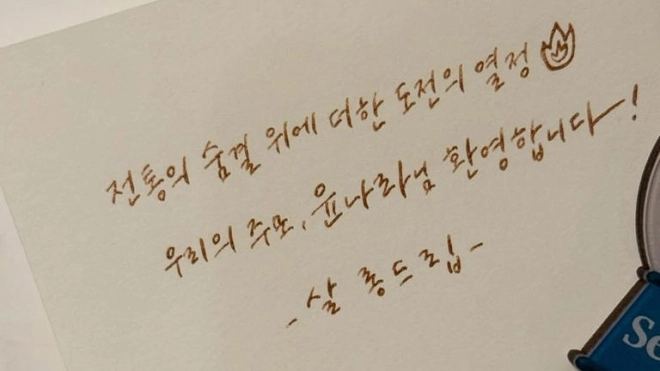 전통의 숨결 위에 더한 도전의 열정
우리의 주모, 윤나라님 환영합니다~!
- 살롱드립 -
Se